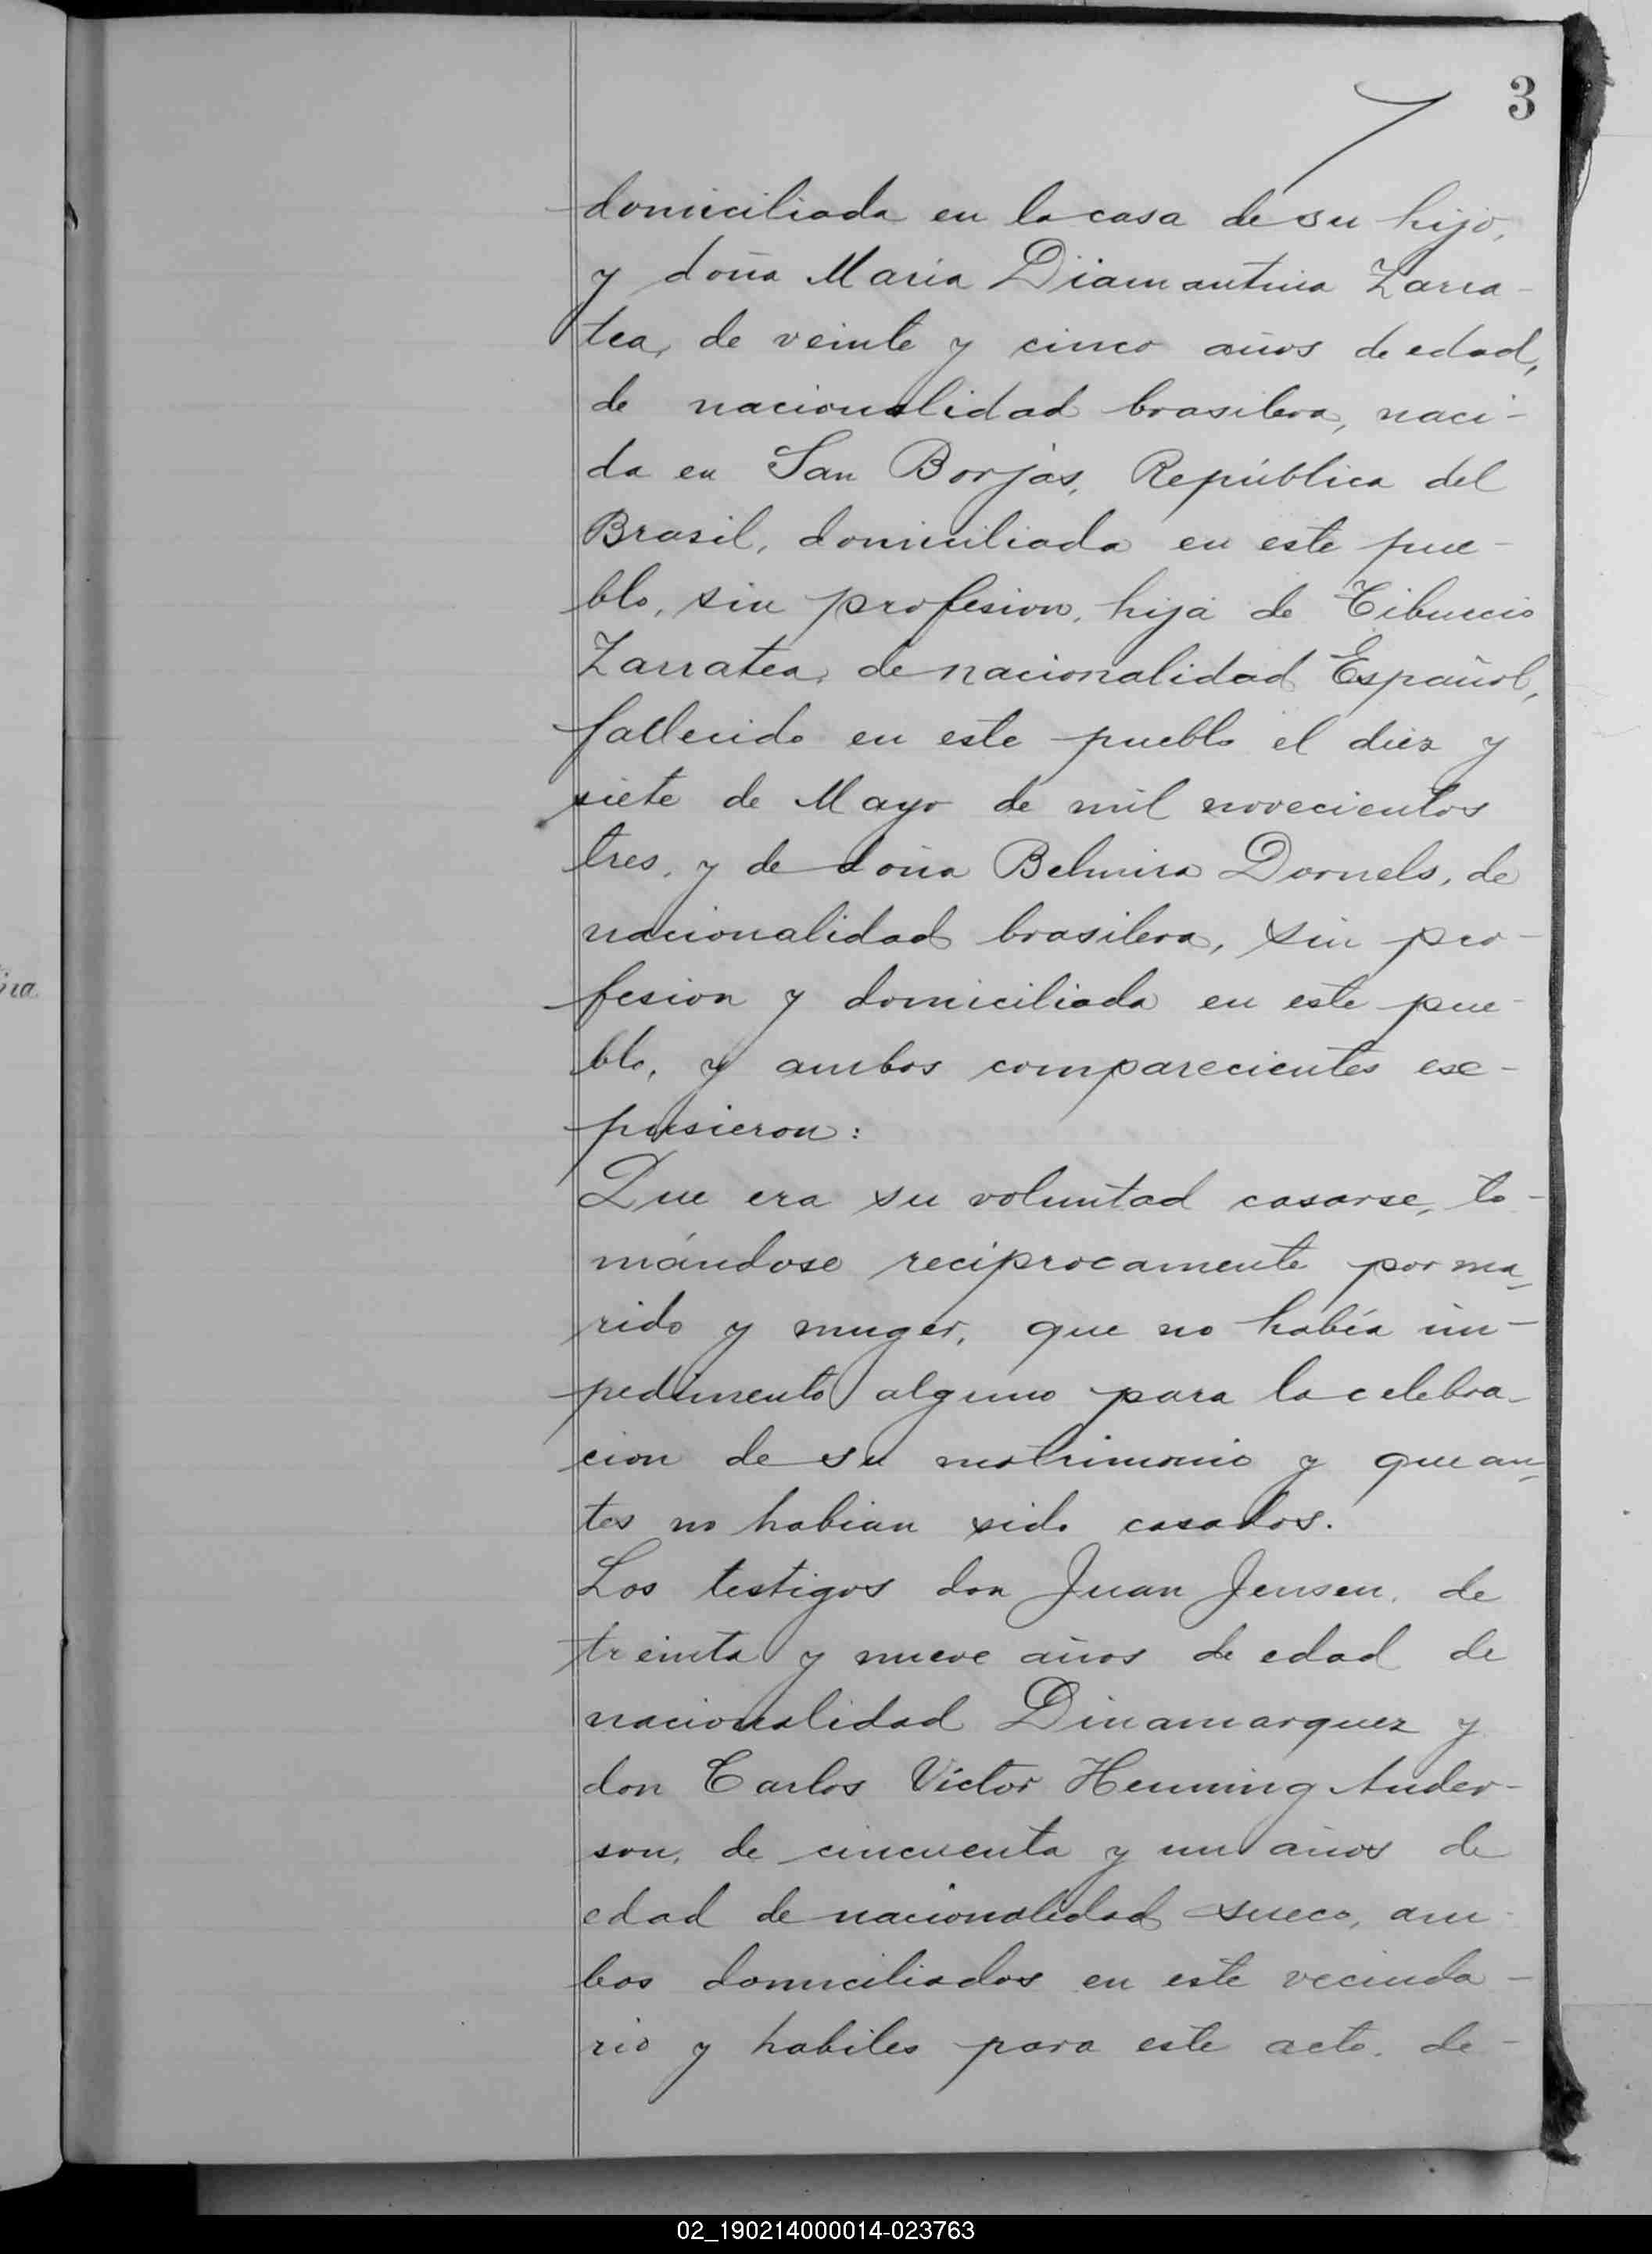 3
domiciliada en la casa de su hijo,
y doña Maria Diamantina Zarra-
tea, de veinte y cinco años de edad,
de nacionalidad brasilera, naci-
da en San Borjas, República del
Brasil, domiciliada en este pue-
blo, sin profesion, hija de Tiburcio
Zarratea, de nacionalidad Español,
fallecido en este pueblo el diez y
siete de Mayo de mil novecientos
tres, y de doña Belmira Dornels, de
nacionalidad brasilera, sin pro-
fesion y domiciliada en este pue-
blo, y ambos comparecientes ex-
pusieron:
Que era su voluntad casarse, to-
mándose reciprocamente por ma-
rido y muger, que no había im-
pedimento alguno para la celebra-
cion de su matrimonio y que an-
tes no habian sido casados.
Los testigos don Juan Jensen, de
treinta y nueve años de edad de
nacionalidad Dinamarquez y
don Carlos Victor Henning Ander-
son, de cincuenta y un años de
edad de nacionalidad sueco, am-
bos domiciliados en este vecinda-
rio y habiles para este acto, de-
02_190214000014-023763